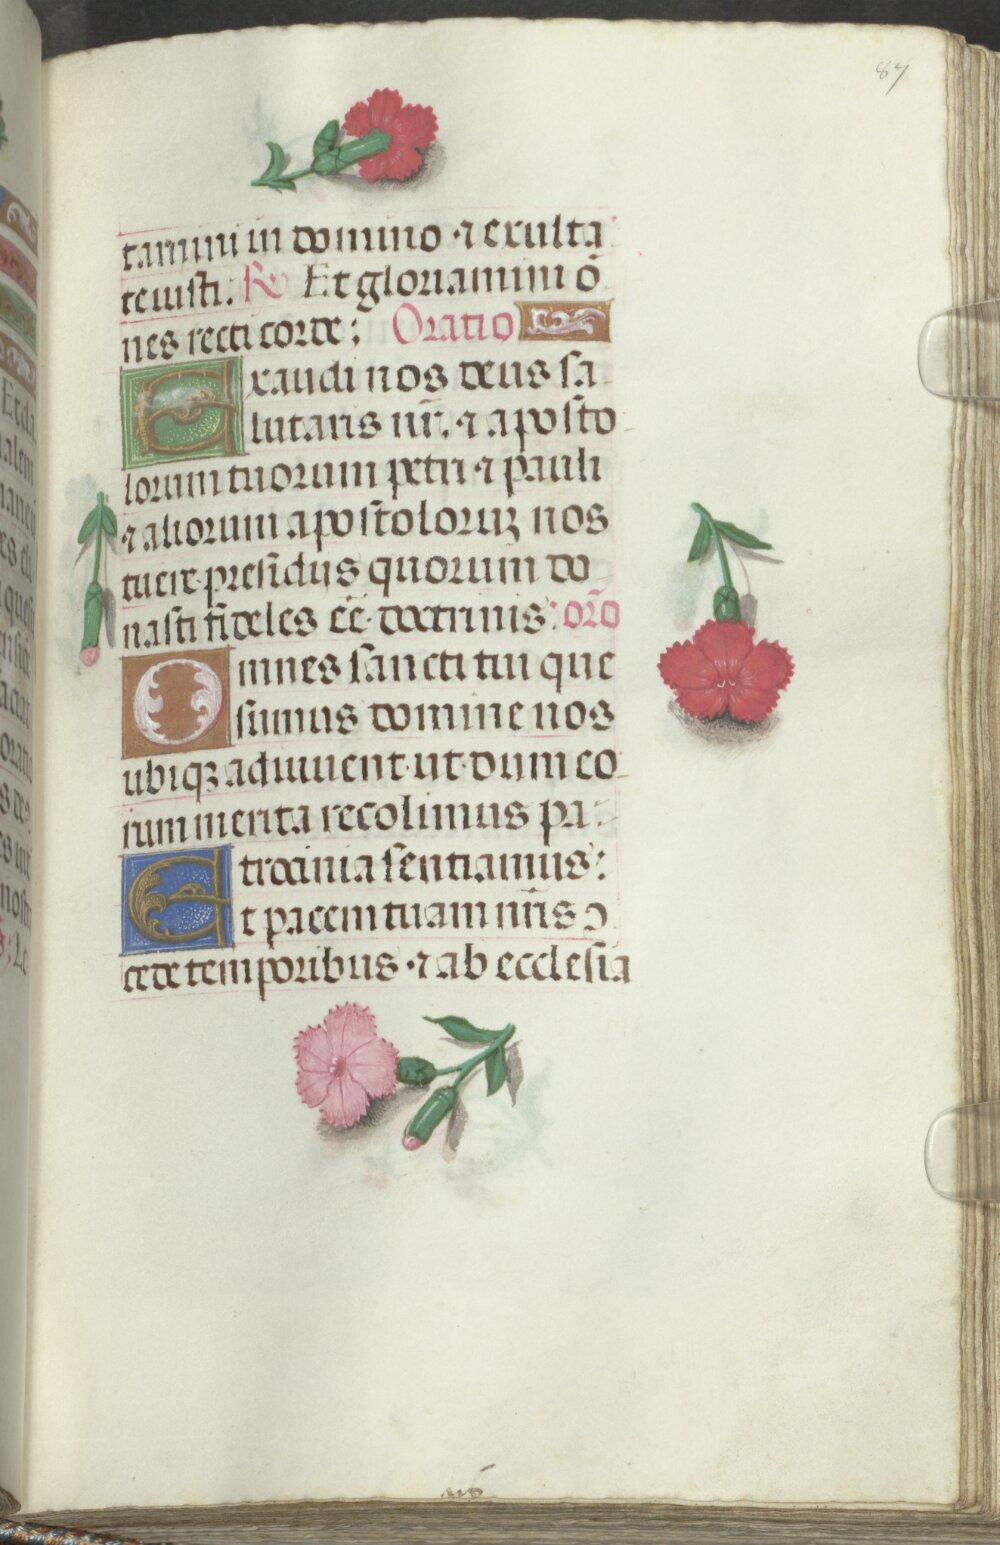 87
tamini in domino ⁊ exulta
te iusti. R Et gloriamini o᷑
nes recti corde: Oratio
Exaudi nos deus sa
lutaris nr̄. ⁊ aposto
lorum tuorum petri ⁊ pauli
⁊ aliorum apostoloruꝫ nos
tuere presidiis quorum do
nasti fideles eē doctrinis: or̄o
Omnes sancti tui que
sumus domine nos
ubiqꝫ adiuuent ut dum eo
rum merita recolimus pa
trocinia sentiamus:
Et pacem tuam nr̄is ↄ
cede temporibus ⁊ ab ecclesia